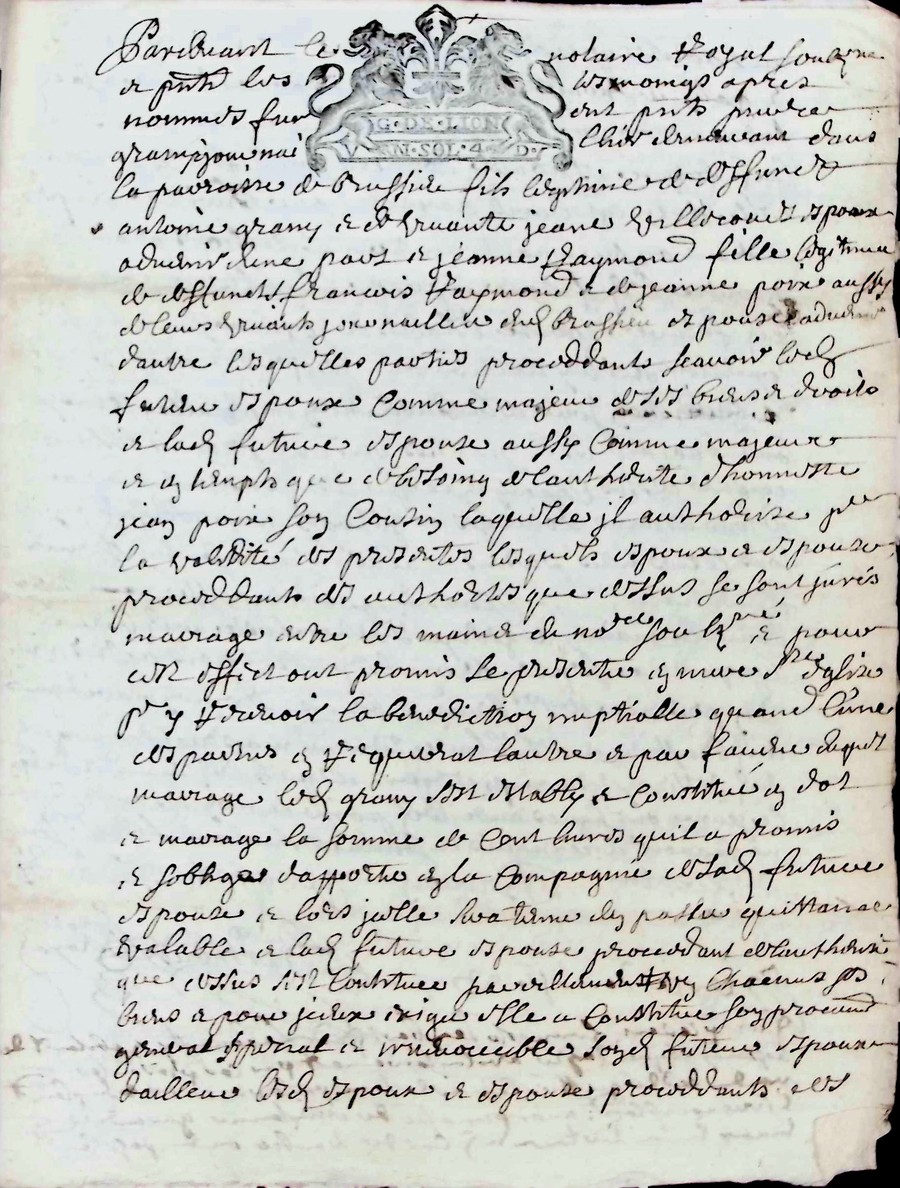 Pardevant le notaire Royal soubzne
et pnts les tesmoings apres
nommes fur ent pnts
gramy journal demeurant dans
G · DE · LION
V N · SOL · 4 · D ·
la parroisse de brussieu fils legitime de deffunct
antoine gramy et de vivante jeane espoux
advenir dune part et jeanne Raymond fille legitime
de deffunct francois Raymond et de jeanne poix aussy
de leurs vivants journallier dud brussieu espouse advenir
dautre lesquelles parties proceddants scavoir led
futeur espoux Comme majeur de ses biens et droits
et lad future espouse aussy Comme majeure
et en temps que de besoing de lauthorite dhonneste
jean poix son Cousin laquelle jl authorise pr
la validité des presentes lesquels espoux et espouse
proceddants des authorites que dessus se sont jurés
mariage entre les mains du nore soubzne et pour
cest effect ont promis se presenter en mere Ste eglise
pr y Recevoir la benediction nuptialle quand lune
des parties en Requerat lautre et par faveur duquel
mariage led gramy sest estably et Constitué en dot
et mariage la somme de Cent livres quil a promis
et soblige dapporter en la Compagnie de sad future
espouse et lors jcelle sera tenue den passer quittance
valable et lad future espouse proceddant de lauthorité
que dessus sest Constituee pareillement tous en Chacuns ses
biens et pour jceux exiger elle a Constitue son procureur
general special et irrevoccable sond futeur espoux
dailleur lesd espoux et espouse proceddants des